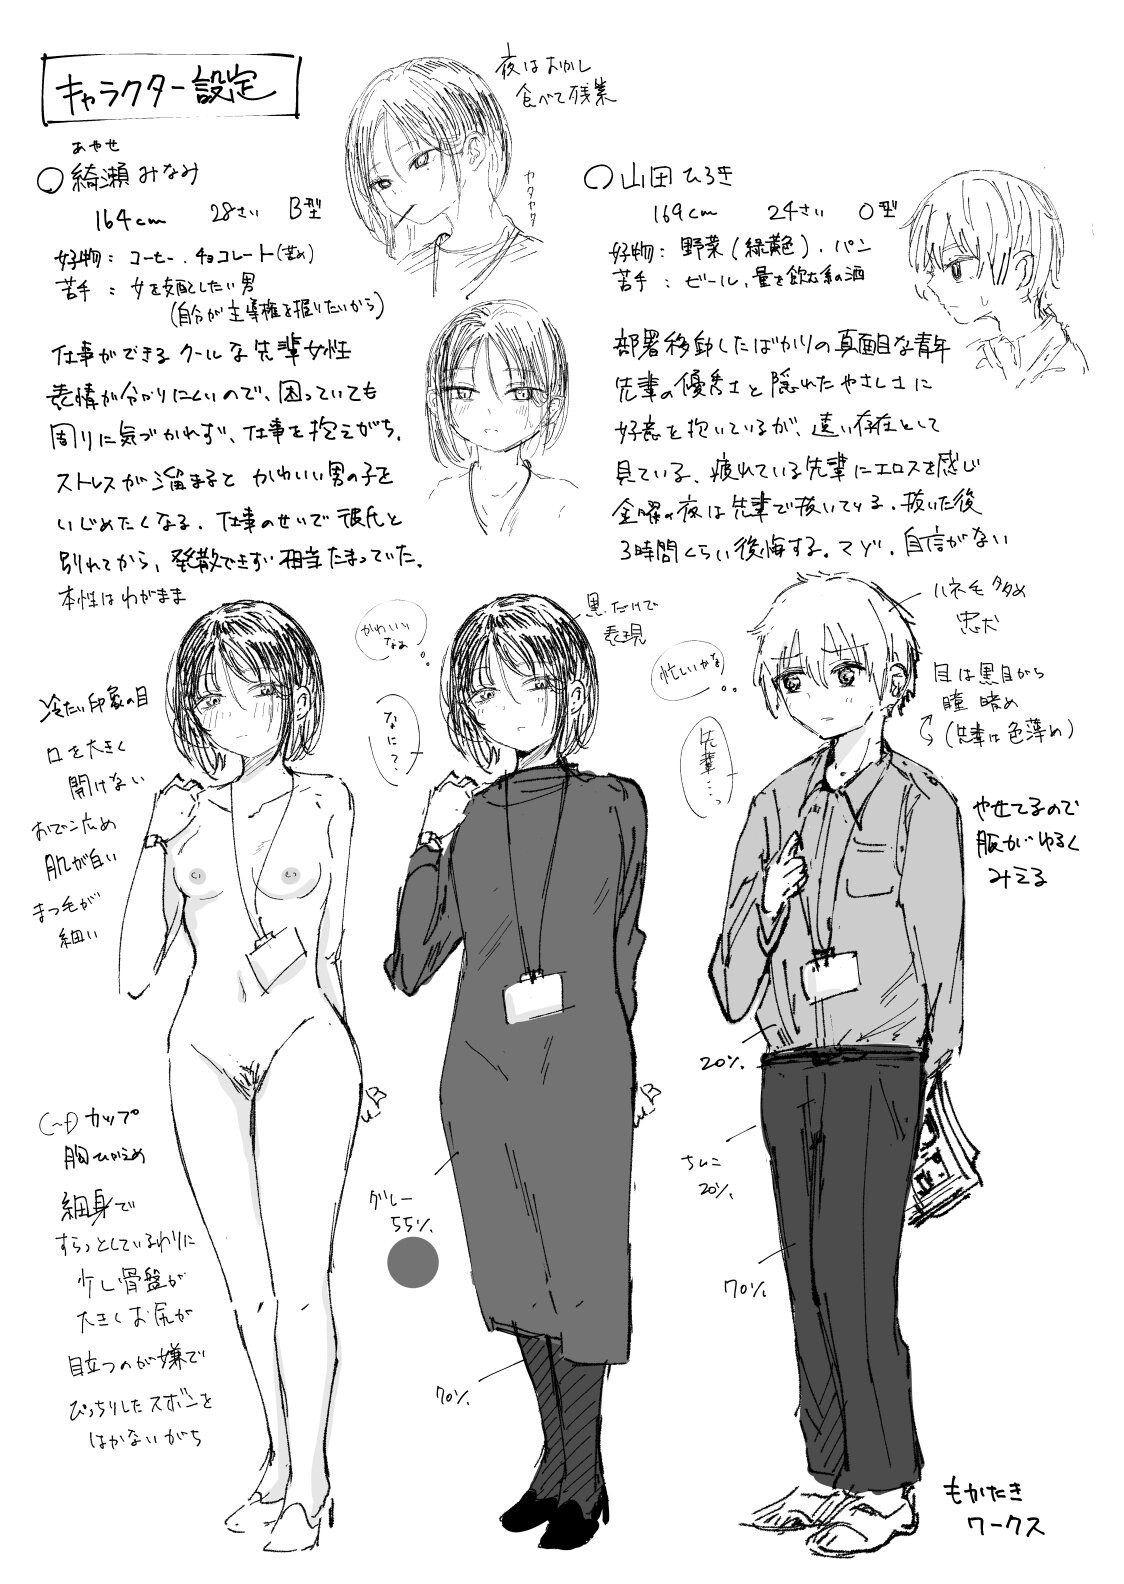 キャラクター設定
夜はおかし
食べて残業
カタカタ
あやせ
○綺瀬みなみ
164cm 28さい B型
好物：コーヒー、チョコレート(苦め)
苦手：女を支配したい男
(自分が主導権を握りたいから)
仕事ができるクールな先輩女性
表情が分かりにくいので、困っていても
周りに気づかれず、仕事を抱えがち。
ストレスが溜まるとかわいい男の子を
いじめたくなる。仕事のせいで彼氏と
別れてから、発散できずに相当たまっていた。
本性はわがまま
○山田ひろき
169cm 24さい O型
好物：野菜(緑黄色)、パン
苦手：ビール、量を飲む系の酒
部署移動したばかりの真面目な青年
先輩の優秀さと隠れたやさしさに
好意を抱いているが、遠い存在として
見ている。疲れている先輩にエロスを感じ
金曜の夜は先輩で抜いてる。抜いた後
3時間くらい後悔する。マゾ。自信がない
冷たい印象の目
口を大きく
開けない
おでこ広め
肌が白い
まつ毛が
細い
かわいい
なあ
なに？
黒だけで
表現
忙しいかな
先輩…っ
ハネ毛タタめ
忠犬
目は黒目がち
瞳 暗め
(先輩は色薄め)
やせてるので
服がゆるく
みえる
カップ
胸ひかえめ
細身で
すらっとしているわりに
少し骨盤が
大きくお尻が
目立つのが嫌で
ぴっちりしたズボンを
はかないがち
グレー
55%
70%
20%
20%
70%
もかたき
ワークス